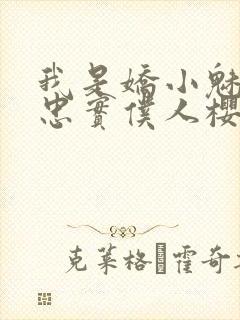 我是嬌小魅
忠實僕人櫻
克萊格·霍奇